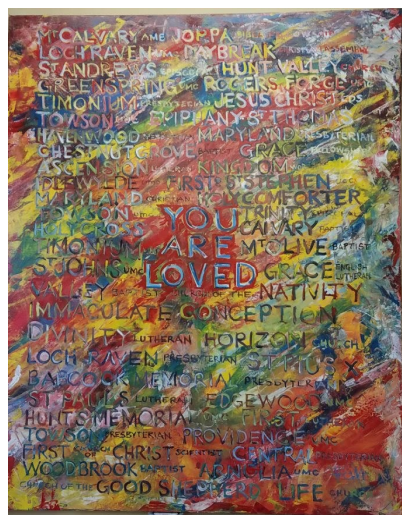 MT CALVARY AME JOPPA
LOCH RAVEN UMC DAYBREAK
ST ANDREWS HUNT VALLEY CHURCH
GREENSPRING UMC RODGERS FORGE UMC
TIMONIUM PRESBYTERIAN JESUS CHRIST LDS
TOWSON UMC EPIPHANY ST THOMAS
HAVENWOOD MARYLAND PRESBYTERIAN
CHESTNUT GROVE GRACE FELLOWSHIP
ASCENSION KINGDOM
IDLEWYLDE FIRST ST STEPHEN
MARYLAND CHRISTIAN HOLY COMFORTER
TRINITY
HOLY CROSS CALVARY BAPTIST
YOU
ARE
LOVED
TIMONIUM UMC MT OLIVE BAPTIST
ST JOHNS UMC GRACE ENGLISH LUTHERAN
VALLEY BAPTIST CHURCH OF THE NATIVITY
IMMACULATE CONCEPTION
DIVINITY LUTHERAN HORIZON CHURCH
LOCH RAVEN PRESBYTERIAN ST PIUS X
BABCOCK MEMORIAL PRESBYTERIAN
ST PAULS LUTHERAN EDGEWOOD UMC
HUNTS MEMORIAL UMC FIRST
TOWSON PRESBYTERIAN PROVIDENCE UMC
FIRST CHURCH OF CHRIST SCIENTIST CENTRAL
WOODBROOK BAPTIST UMC
CHURCH OF THE GOOD SHEPHERD LIFE CHURCH